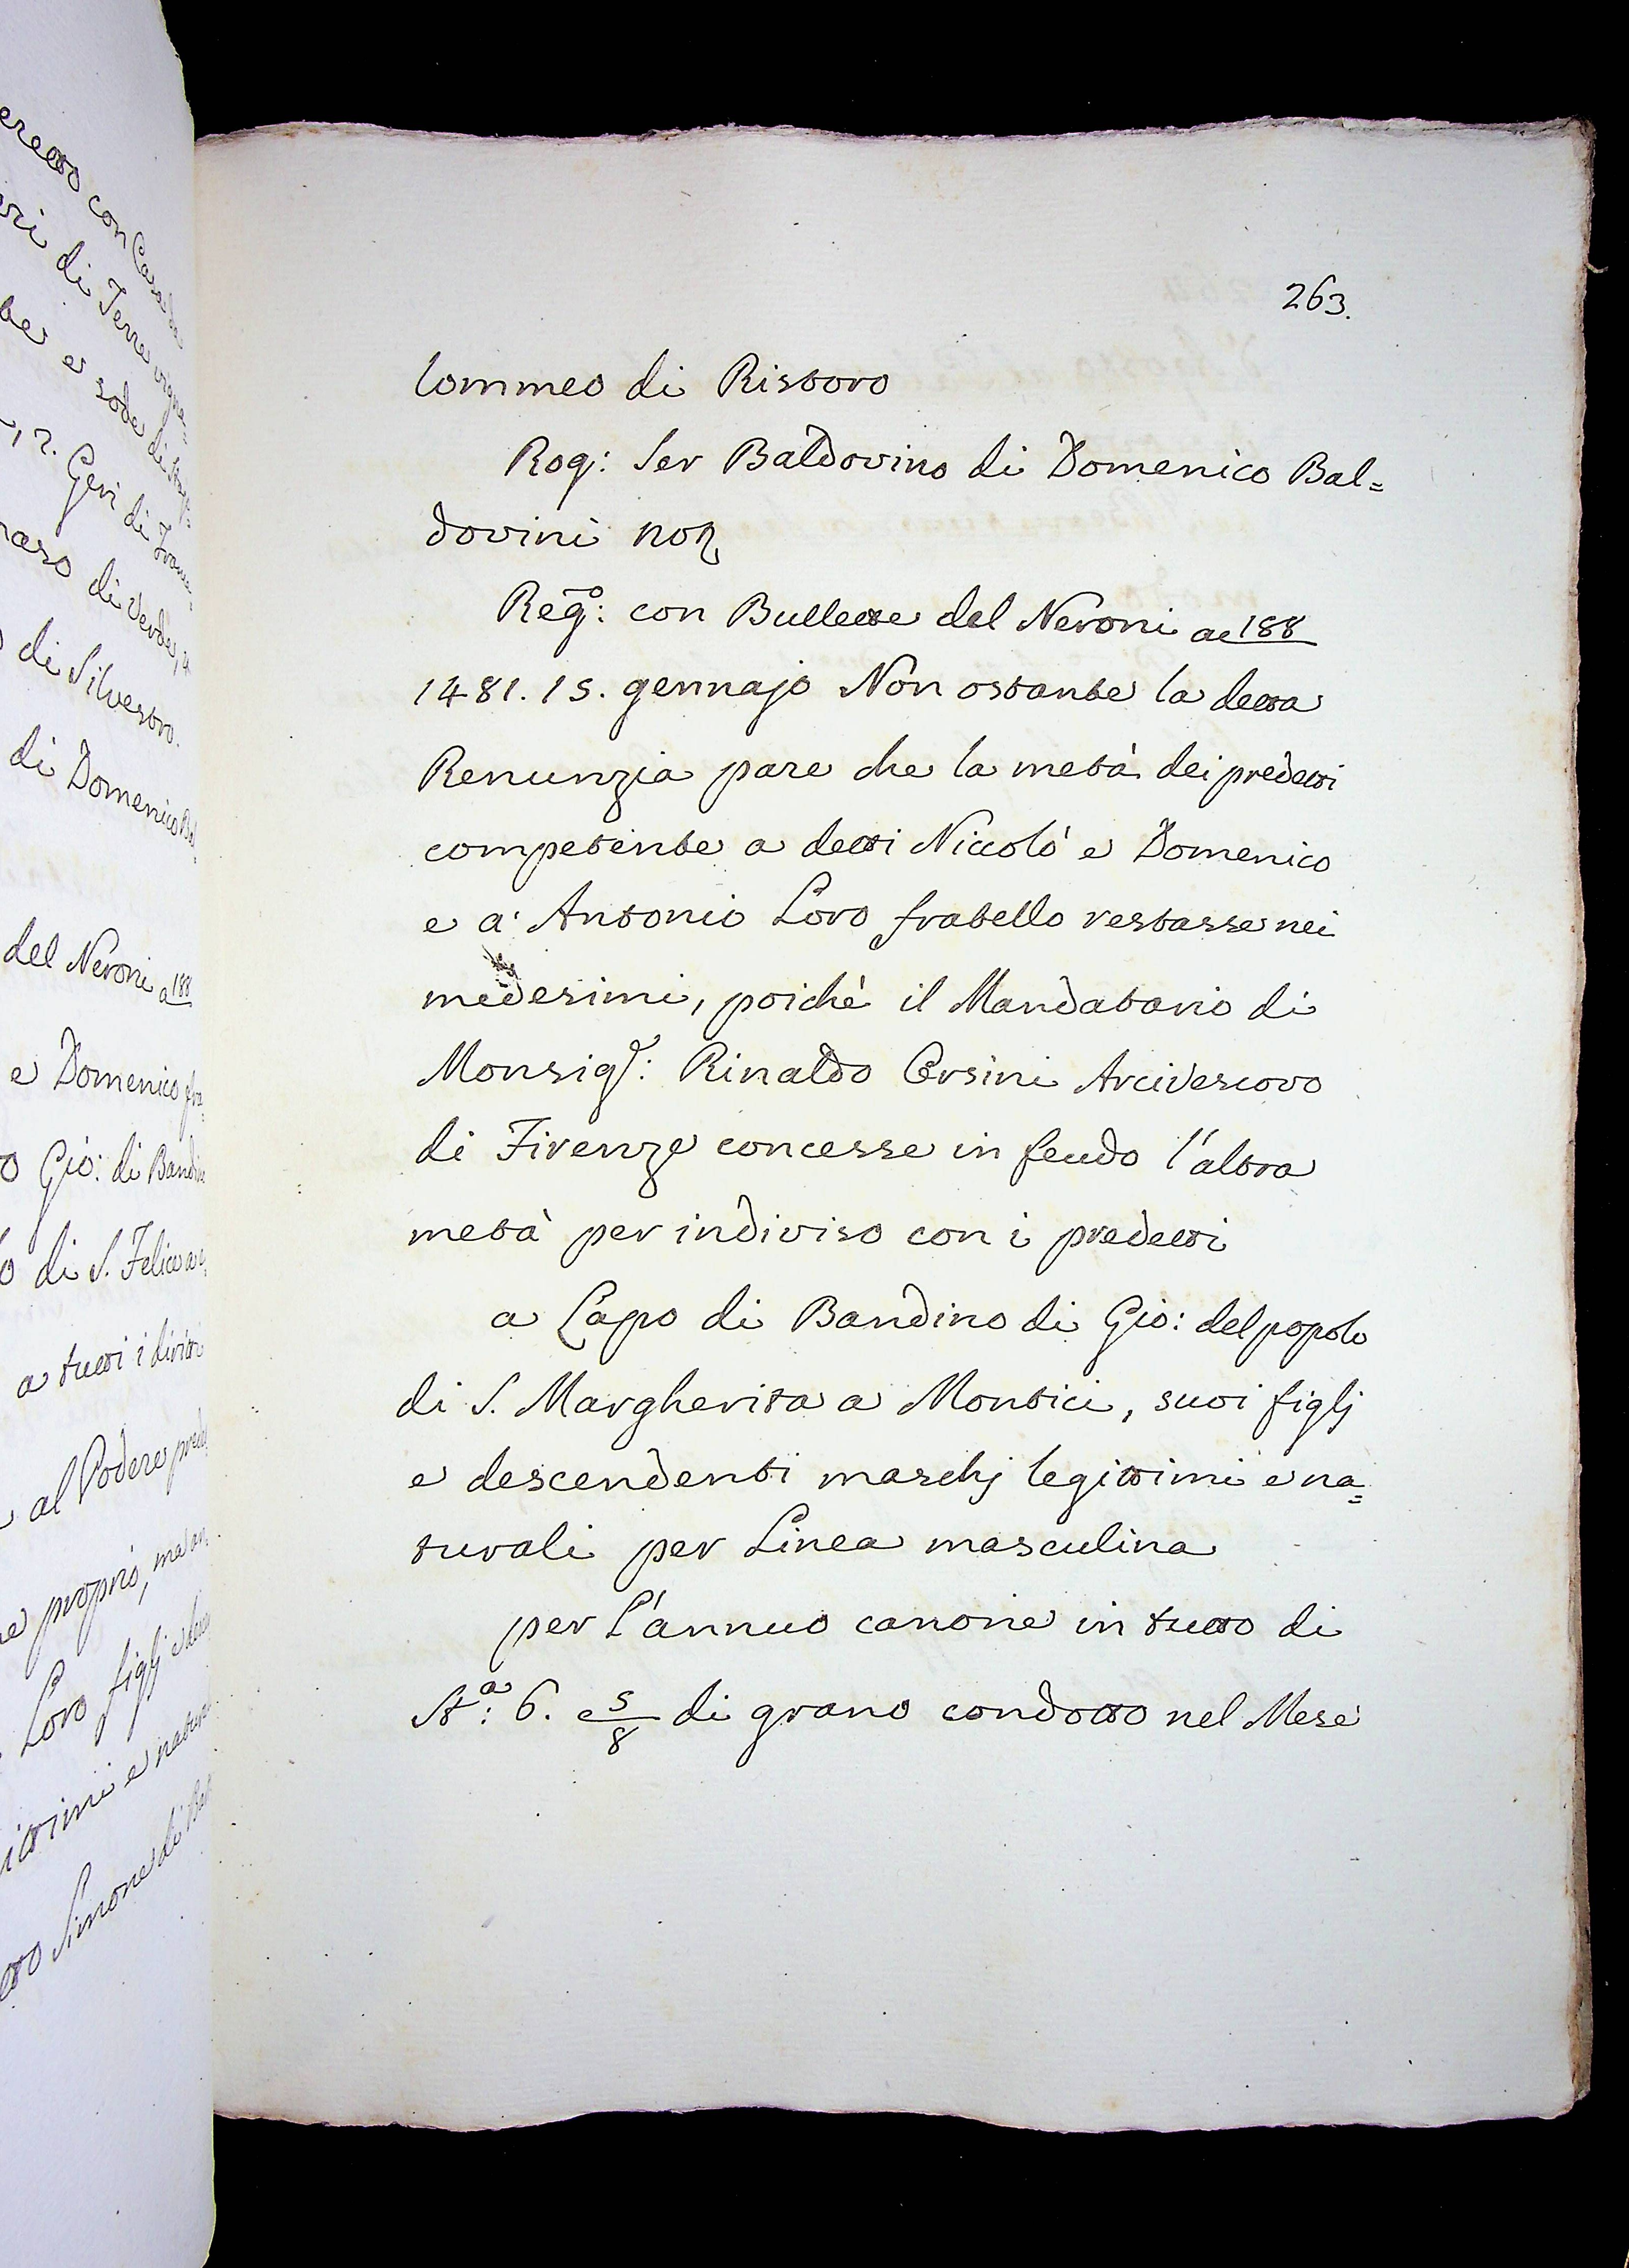 263.
lommeo di Ristoro
Rog: Ser Baldovino di Domenico Bal=
dovini not
Regº: con Bullette del Neroni ac 188
1481. 15. gennajo Non ostante la detta
Renunzia pare che la metà dei predetti
competente a detti Niccolò e Domenico
e a' Antonio Loro fratello restasse nei
medesimi, poichè il Mandatario di
Monsigr: Rinaldo Orsini Arcivescovo
di Firenze concesse in feudo l'altra
metà per indiviso con i predetti
a Lapo di Bandino di Gio: del popolo
di S. Margherita a Montici, suoi figlj
e descendenti maschj legittimi e na=
turali per Linea masculina
per L'annuo canone in tutto di
Stª: 6. e 5/8 di grano condotto nel Mese
con Casa da
di Terre vigne=
e sode di
, 2. Geri di
di Verde, 4
di Silvestro.
di Domenico
del Neroni a 188
e Domenico fra=
Gio: di Bandin
di S. Felice a
a tutti i diritti
al Podere pred
proprio, ma
Loro figlj e
e natura
Simone di